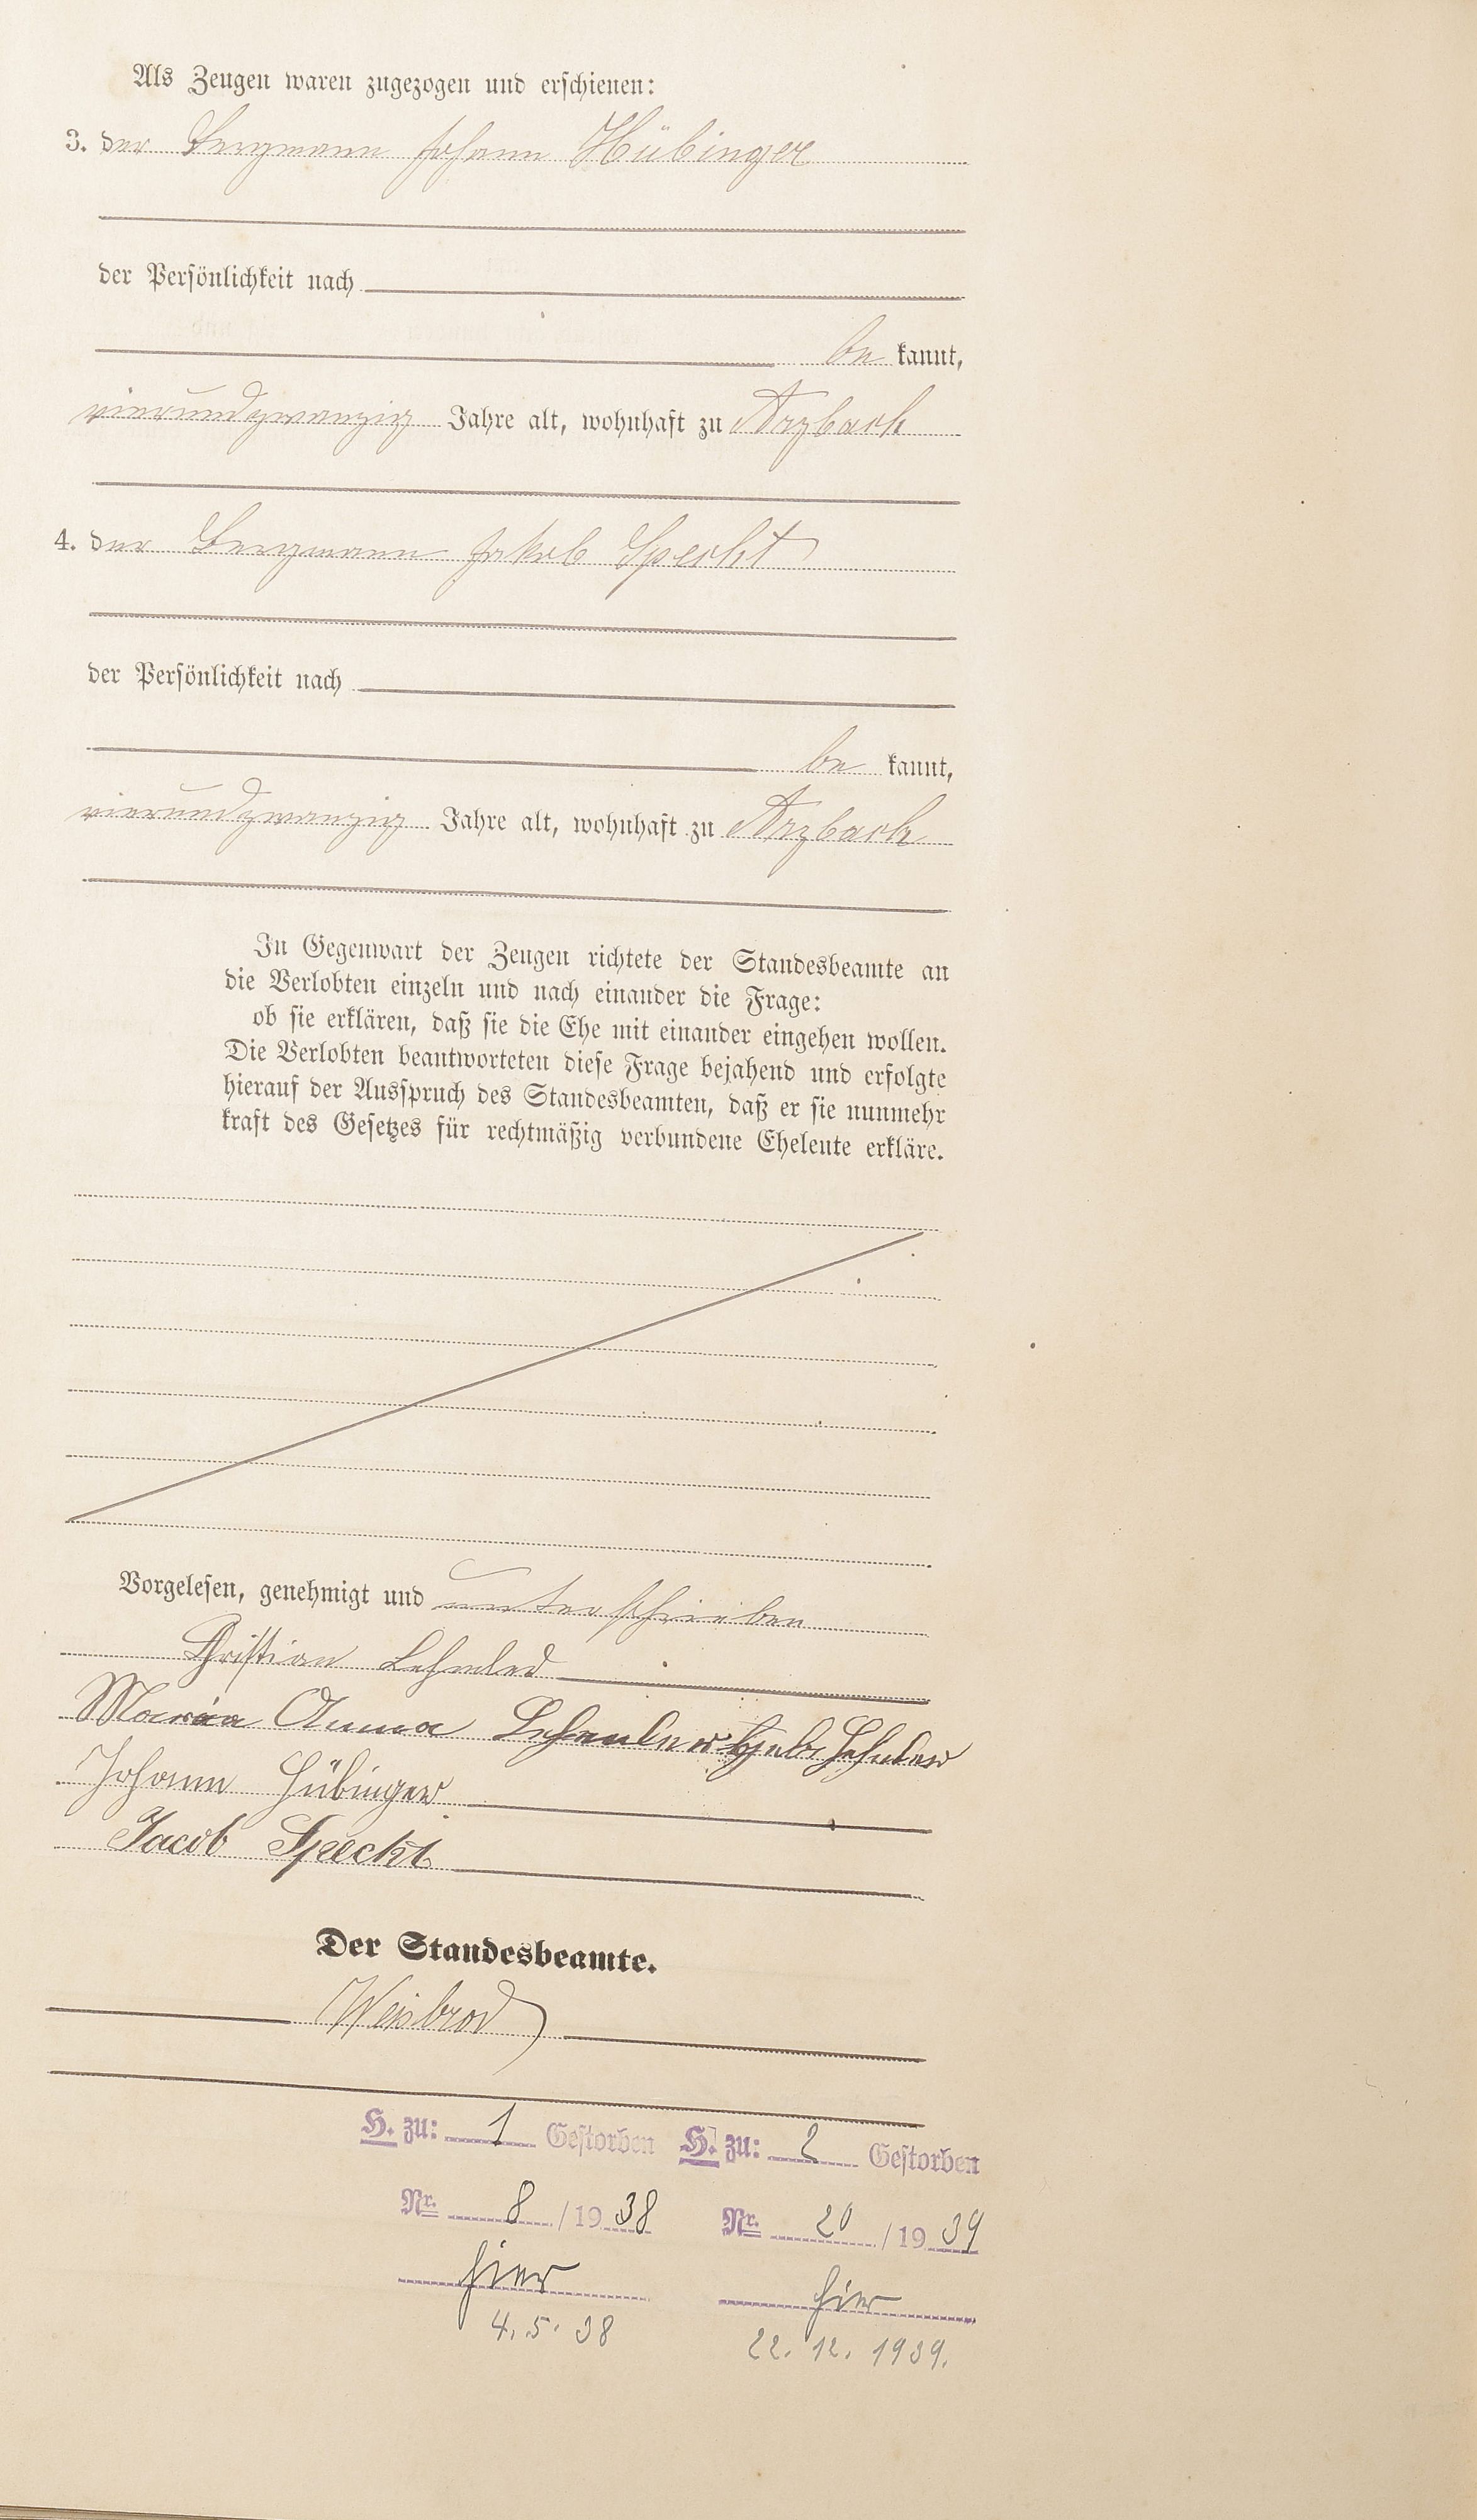 Als Zeugen waren zugezogen und erschienen:
3. der Bergmann Johann Hübinger
der Persönlichkeit nach
be kannt,
vierundzwanzig Jahre alt, wohnhaft zu Arzbach
4. der Bergmann Jakob Specht
der Persönlichkeit nach
be kannt,
vierundzwanzig Jahre alt, wohnhaft zu Arzbach
In Gegenwart der Zeugen richtete der Standesbeamte an
die Verlobten einzeln und nach einander die Frage:
ob sie erklären, daß sie die Ehe mit einander eingehen wollen.
Die Verlobten beantworteten diese Frage bejahend und erfolgte
hierauf der Ausspruch des Standesbeamten, daß er sie nunmehr
kraft des Gesetzes für rechtmäßig verbundene Eheleute erkläre.
Vorgelesen, genehmigt und unterschrieben
Christian
Maria Anna
Johann Hübinger
Jacob Speckt
Der Standesbeamte.
Weisbrod
H. zu: 1 Gestorben H. zu: 2 Gestorben
Nr. 8 / 19 38 Nr. 20 / 19 39
hier hier
4. 5. 38 22. 12. 1939.